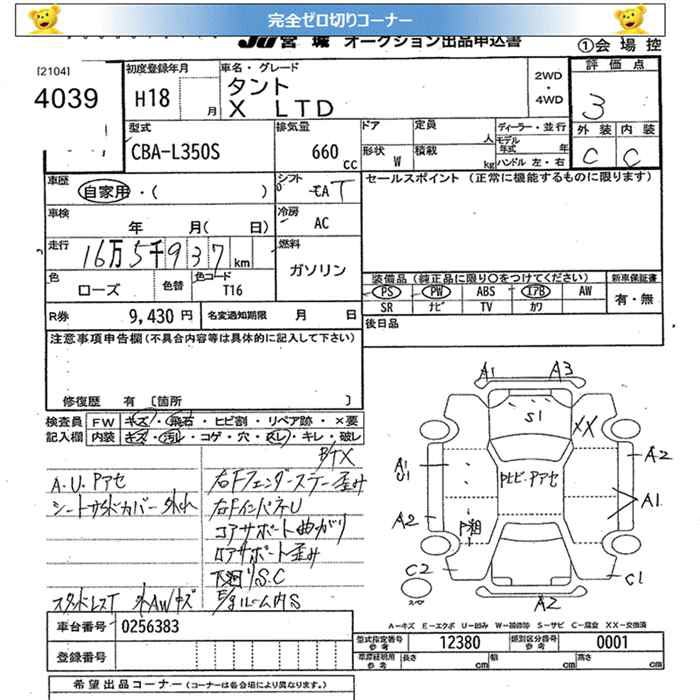 完全ゼロ切りコーナー
JU 宮城 オークション出品申込書
①会場控
[2104]
4039
初度登録年月
H18
月
車名・グレード
タント
X LTD
2WD
・
4WD
評価点
3
型式
CBA-L350S
排気量
660
cc
ドア
形状
W
定員
人
積載
kg
ディーラー・並行
モデル年式 年
ハンドル 左・右
外装
内装
C
C
車歴
自家用・( )
シフト
AT
セールスポイント (正常に機能するものに限ります)
車検
年 月( 日)
冷房
AC
走行
16万5千937km
燃料
ガソリン
色
ローズ
色替
色コード
T16
装備品(純正品に限り○をつけてください)
新車保証書
PS PW ABS エアB AW
SR ナビ TV カワ
有・無
R券
9,430 円
名変通知期限 月 日
後日品
注意事項申告欄(不具合内容等は具体的に記入して下さい)
修復歴 有 [箇所 ]
検査員
記入欄
FW キズ・飛石・ヒビ割・リペア跡・×要
内装 キズ・汚レ・コゲ・穴・スレ・キレ・破レ
A.U. Pアセ
シートサイドカバー外れ
右Fフェンダーステー歪み
右FインパネU
コアサポート曲がり
ロアサポート歪み
下廻りS.C
E/gルーム内S
A1 A3
S1
XX
A1
U1
A2
PヒビPアセ
A2
A1
C2
C1
スペア
A2
車台番号
0256383
A-キズ E-エクボ U-凹み W-補修等 S-サビ C-腐食 XX-交換済
型式指定番号
参考
12380
類別区分番号
参考
0001
登録番号
長さ cm
幅 cm
高さ cm
希望出品コーナー (コーナーは各会場により異なります。)